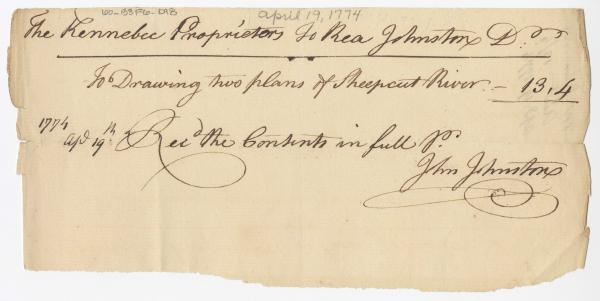 100-B3F6-D13
April 19, 1774
The Kennebec Proprietors to Rea Johnston Dr.
To Drawing two plans of Sheepcut River. — 13,4
1774
Apl. 19th Recd. the Contents in full pr.
Jhn Johnston